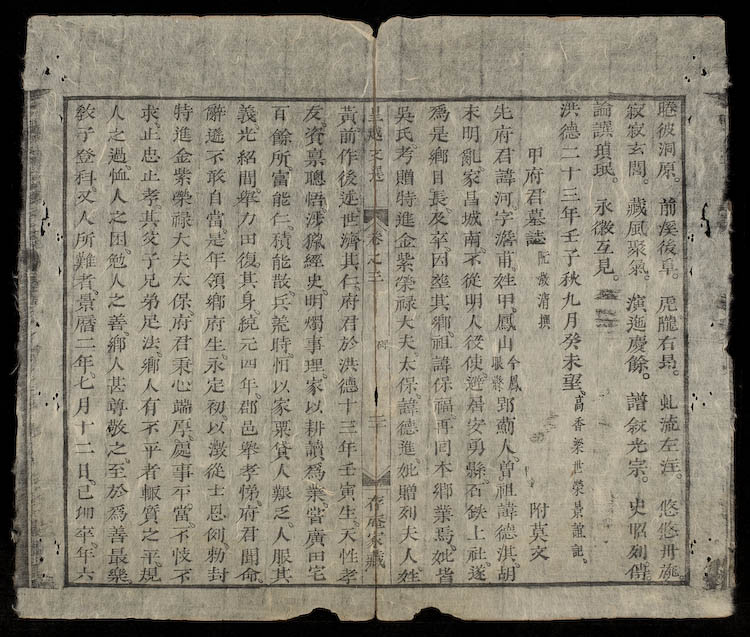 睠彼洞原。前溪後阜。虎隴右昂。虬流左洼。悠悠丹旐。
寂寂玄閣。藏風聚氣。演迤慶餘。譜敘光宗。史昭列傳
論譔瑣珉。永徵互見。
洪德二十三年壬子秋九月癸未望。高香梁世榮景誼記。 附莫文
甲府君墓誌 阮歲清撰
先府君諱河字澹甫。姓甲。鳳山今鳳眼縣郢薊人。曾祖諱德淇。胡
末明亂家昌城南。不從明人役使。避居安勇縣。石鉄上社。遂
為是鄉目長。及卒。因葬其鄉。祖諱保福。再回本鄉業焉。妣皆
吳氏。考贈特進金紫榮祿大夫。太保。諱德進。妣贈列夫人。姓
皇越文選 卷之三 二十 存庵家藏
黃。前作後述世濟其仁。府君於洪德十三年壬寅生。天性孝
友。資稟聰悟。涉獵經史。明燭事理。家以耕讀為業。嘗廣田宅
百餘所。富能仁。積能散。兵荒時。恒以家粟貸人艱乏。人服其
義。光紹間。舉力田復其身。統元四年。郡邑舉孝悌。府君聞命
辭遜不敢自當。是年領鄉府生。永定初以澂從士恩例勑封
特進金紫榮祿大夫太保。府君秉心端厚。處事平當。不忮不
求。止忠止孝。其父子兄弟足法。鄉人有不平者輙質之平。規
人之過。恤人之困。勉人之善。鄉人甚尊敬之。至於為善最樂。
教子登科。又人所難者。景曆二年七月十二日。己卯卒。年六